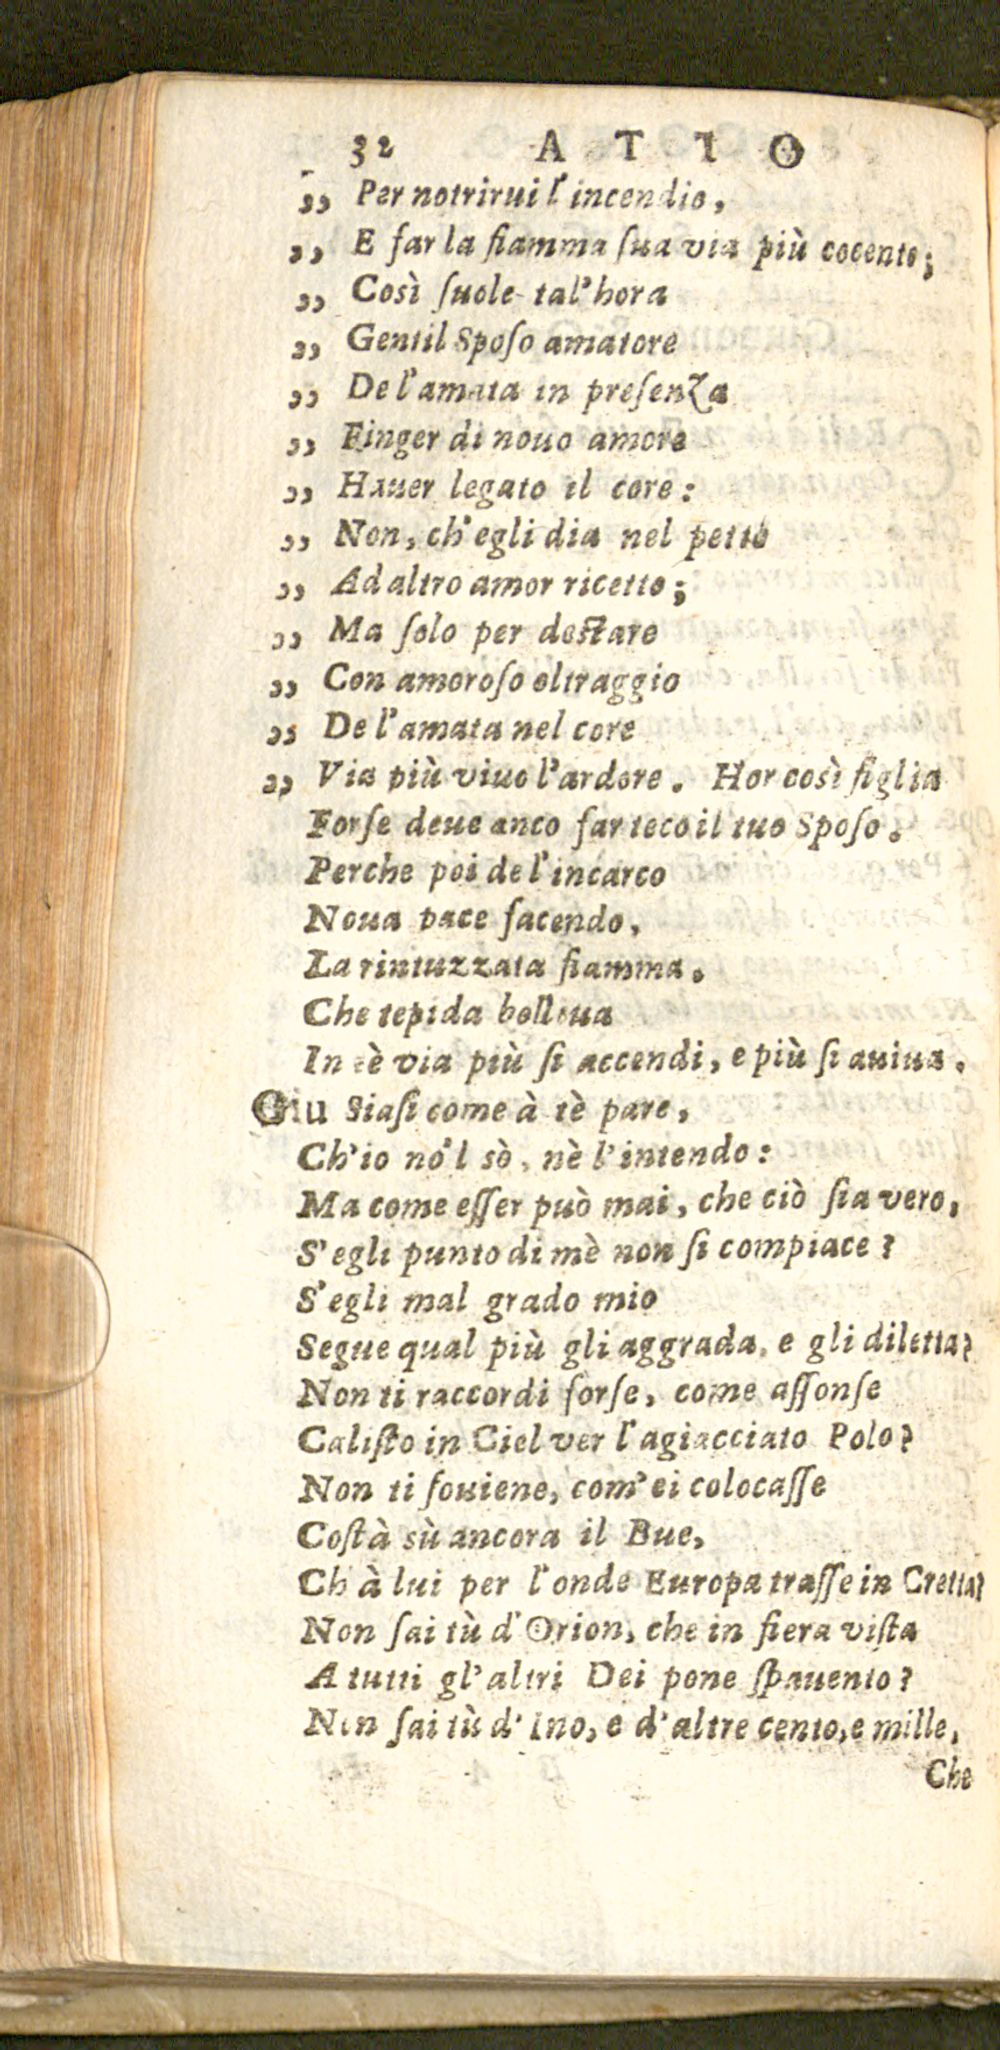 32 ATTO
„ Per notrirui l'incendio,
„ E far la fiamma ſua via più cocente;
„ Così ſuole tal'hora
„ Gentil Spoſo amatore
„ De l'amata in preſenza
„ Finger di nouo amore
„ Hauer legato il core:
„ Non, ch'egli dia nel petto
„ Ad altro amor ricetto;
„ Ma ſolo per deſtare
„ Con amoroſo oltraggio
„ De l'amata nel core
„ Via più viuo l'ardore. Hor così figlia
Forſe deue anco far teco il tuo Spoſo.
Perche poi de l'incarco
Noua pace facendo,
La rintuzzata fiamma.
Che tepida bolloua
In tè via più ſi accendi, e più ſi auiua.
Giu Siaſi come à tè pare,
Ch'io nõ'l sò, nè l'intendo:
Ma come eſſer può mai, che ciò ſia vero,
S'egli punto di mè non ſi compiace?
S'egli mal grado mio
Segue qual più gli aggrada, e gli diletta?
Non ti raccordi forſe, come aſſonſe
Caliſto in Ciel ver l'agiacciato Polo?
Non ti ſouiene, com'ei colocaſſe
Coſtà sù ancora il Bue,
Ch à lui per l'onde Europa traſſe in Cretta?
Non ſai tù d'Orion, che in fiera viſta
A tutti gl'altri Dei pone ſpauento?
Non ſai tù d'Ino, e d'altre cento, e mille,
Che